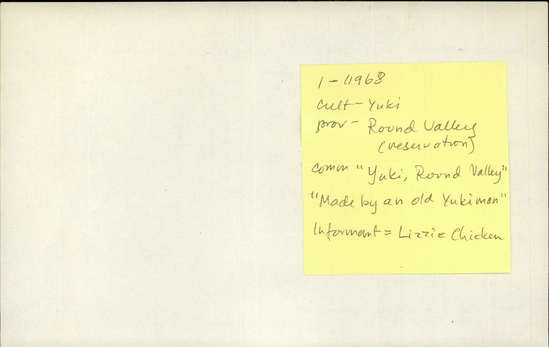 1-11968
cult - Yuki
prov - Round Valley
(reservation)
comm "Yuki, Round Valley"
"Made by an old Yuki man"
Informant = Lizzie Chicken